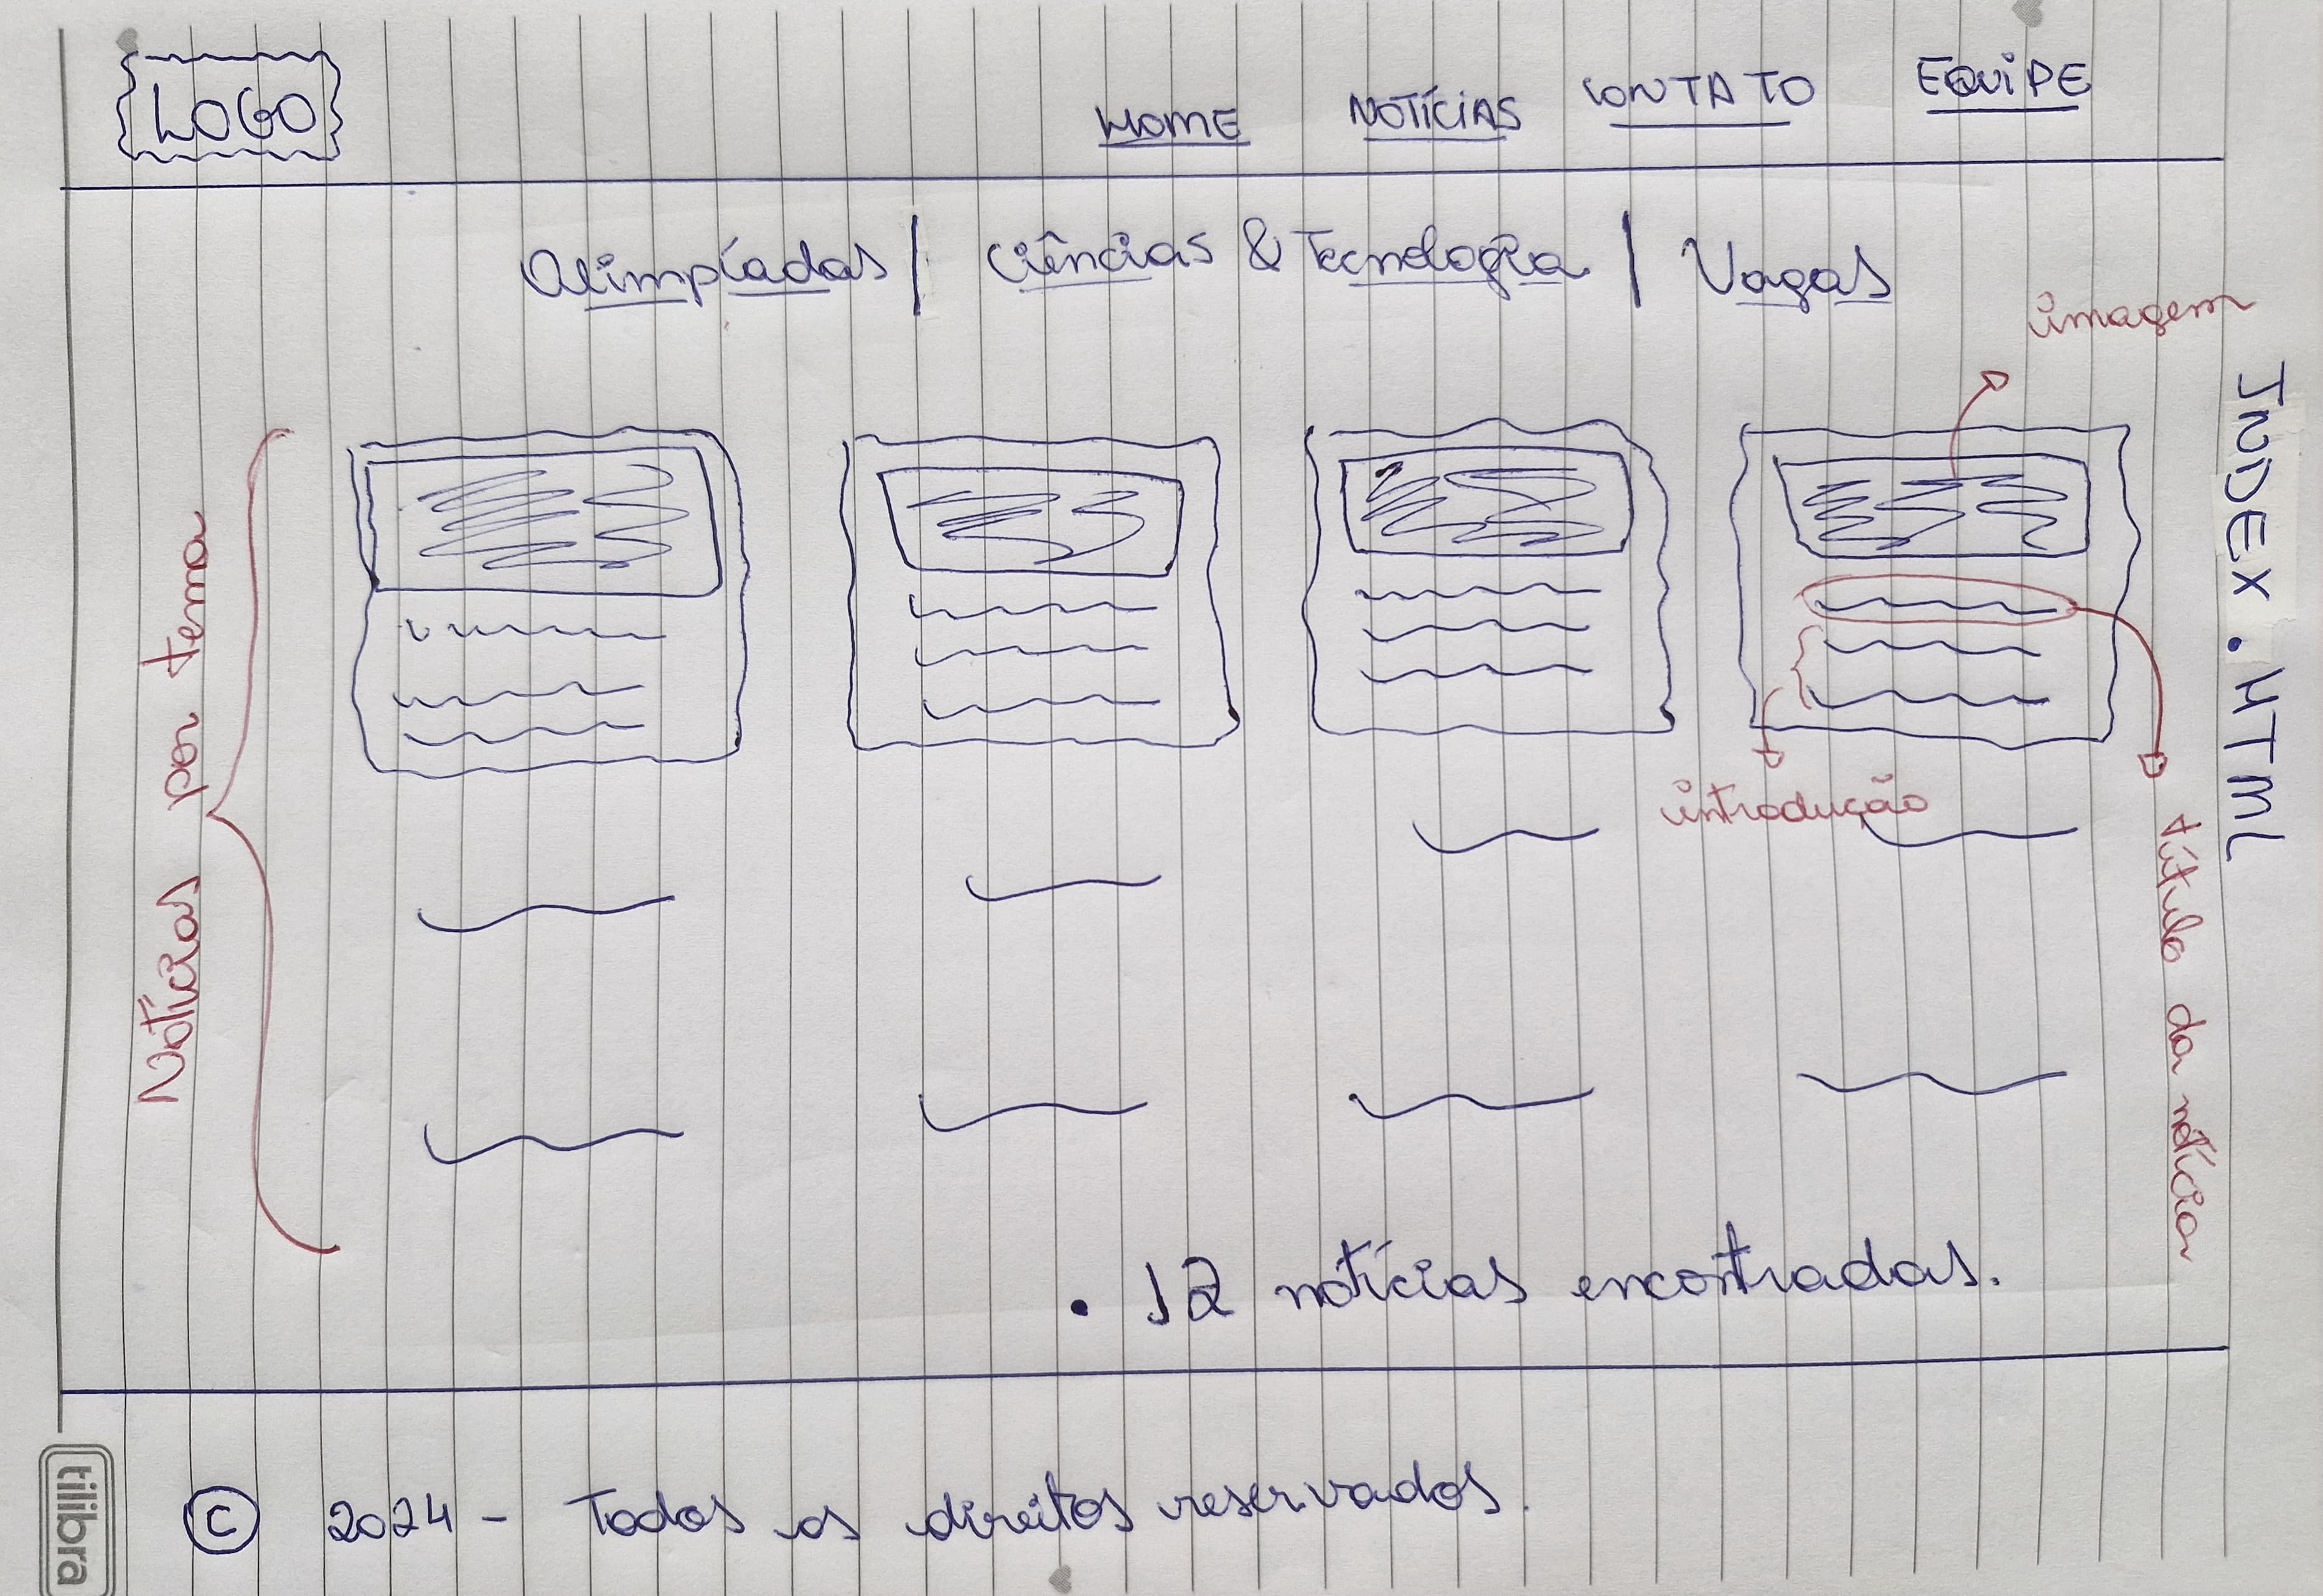 LOGO
HOME NOTÍCIAS CONTATO EQUIPE
Olimpíadas | Ciências & Tecnologia | Vagas
imagem
INDEX.HTML
Notícias por tema
introdução
título da notícia
. 12 notícias encontradas.
© 2024 - Todos os direitos reservados.
tilibra